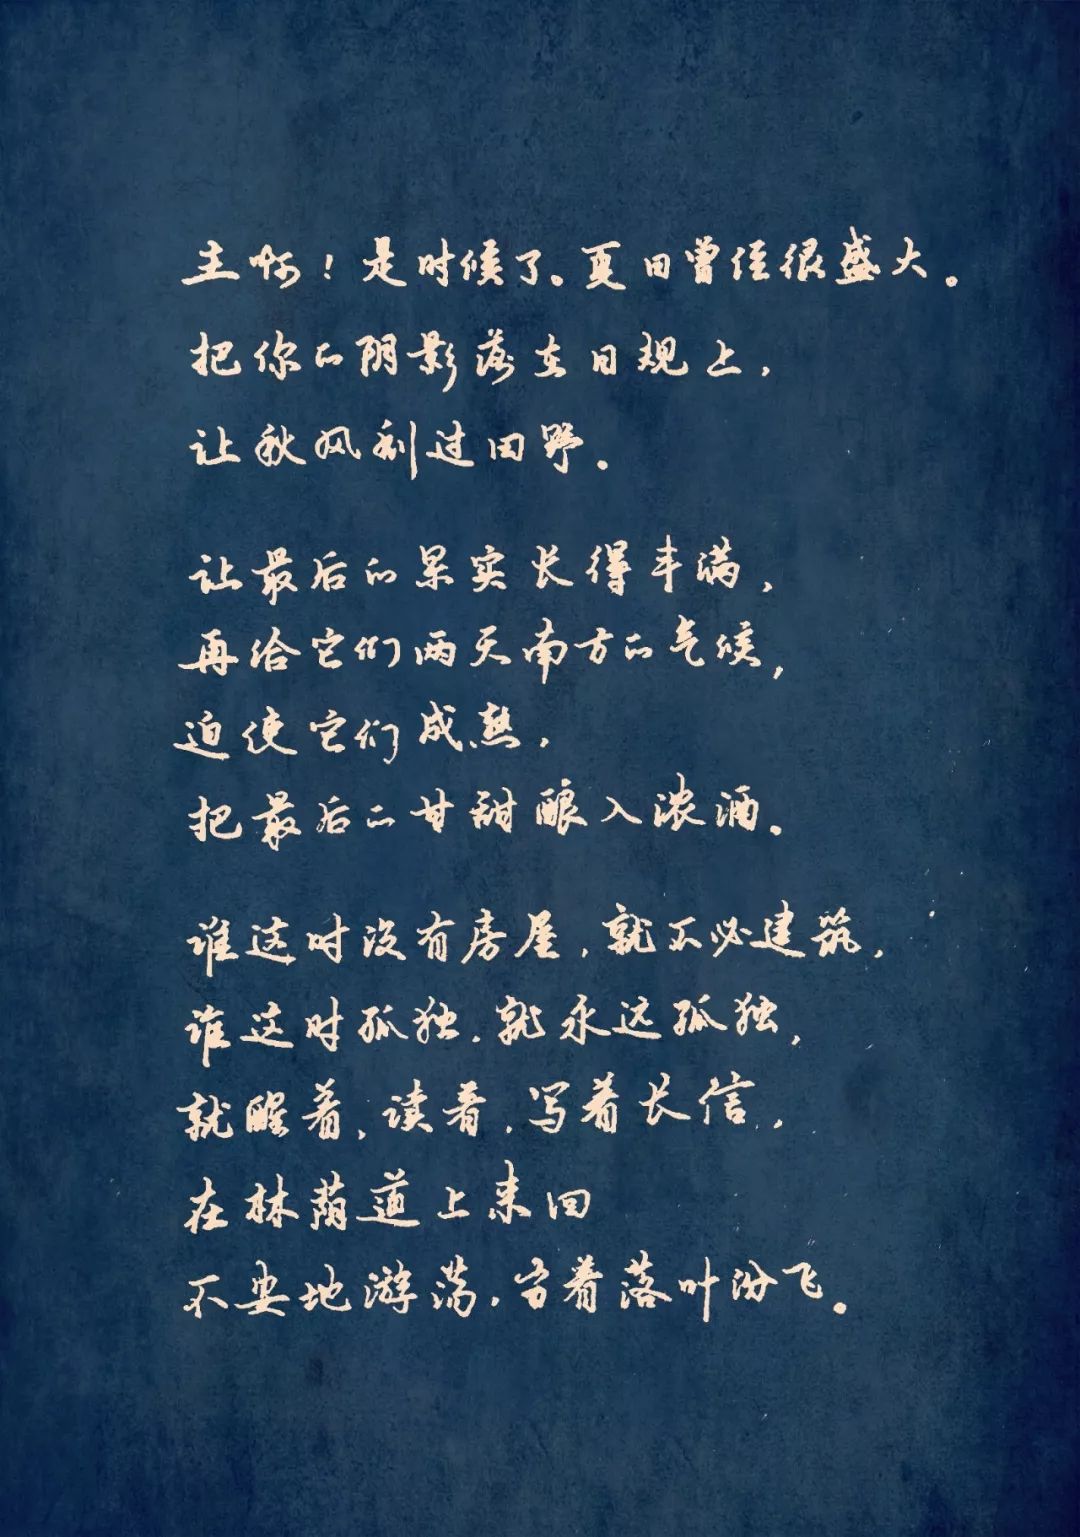 主啊！是时候了。夏日曾经很盛大。
把你的阴影落在日规上，
让秋风刮过田野。
让最后的果实长得丰满，
再给它们两天南方的气候，
迫使它们成熟，
把最后的甘甜酿入浓酒。
谁这时没有房屋，就不必建筑，
谁这时孤独，就永远孤独，
就醒着，读着，写着长信，
在林荫道上来回
不安地游荡，当着落叶纷飞。